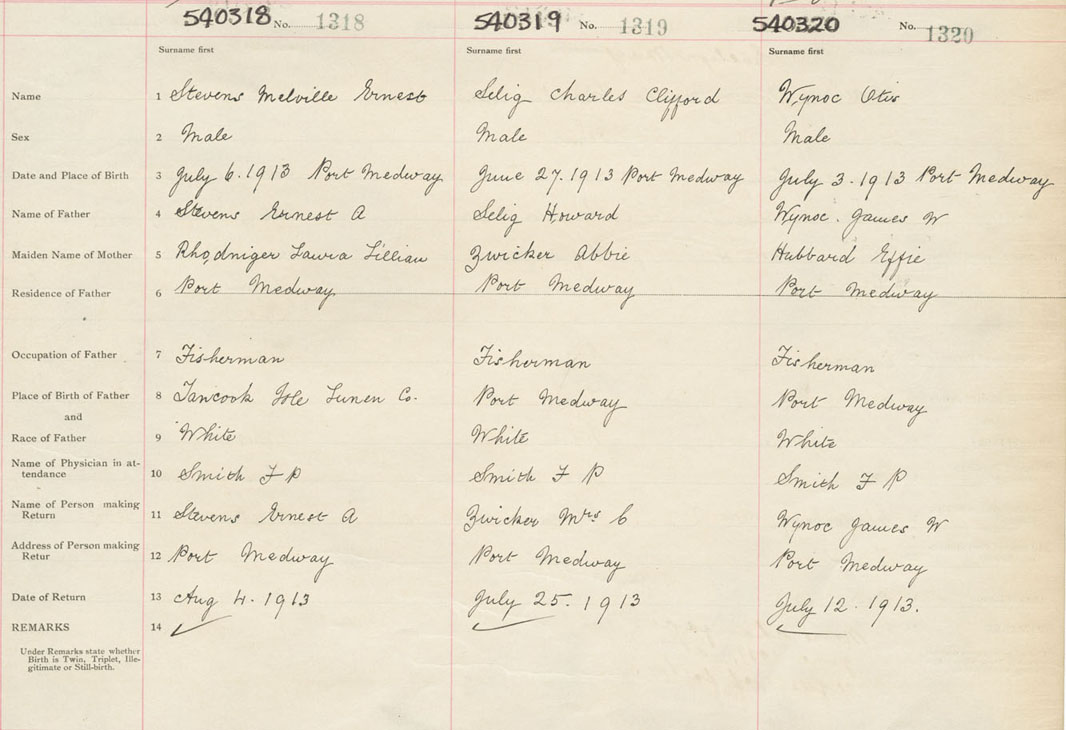 540318 No. 1318 540319 No. 1319 540320 No. 1320
Surname first Surname first Surname first
Name 1 Stevens Melville Ernest Selig Charles Clifford Wynoc Otis
Sex 2 Male Male Male
Date and Place of Birth 3 July 6. 1913 Port Medway June 27. 1913 Port Medway July 3. 1913 Port Medway
Name of Father 4 Stevens Ernest A Selig Howard Wynoc. James W
Maiden Name of Mother 5 Rhodniger Laura Lillian Zwicker Abbie Hubbard Effie
Residence of Father 6 Port Medway Port Medway Port Medway
Occupation of Father 7 Fisherman Fisherman Fisherman
Place of Birth of Father 8 Tancook Isle Lunen Co. Port Medway Port Medway
and
Race of Father 9 White White White
Name of Physician in at-
tendance 10 Smith F P Smith F P Smith F P
Name of Person making
Return 11 Stevens Ernest A Zwicker Mrs C Wynoc James W
Address of Person making
Retur 12 Port Medway Port Medway Port Medway
Date of Return 13 Aug 4. 1913 July 25. 1913 July 12. 1913.
REMARKS 14
Under Remarks state whether
Birth is Twin, Triplet, Ille-
gitimate or Still-birth.